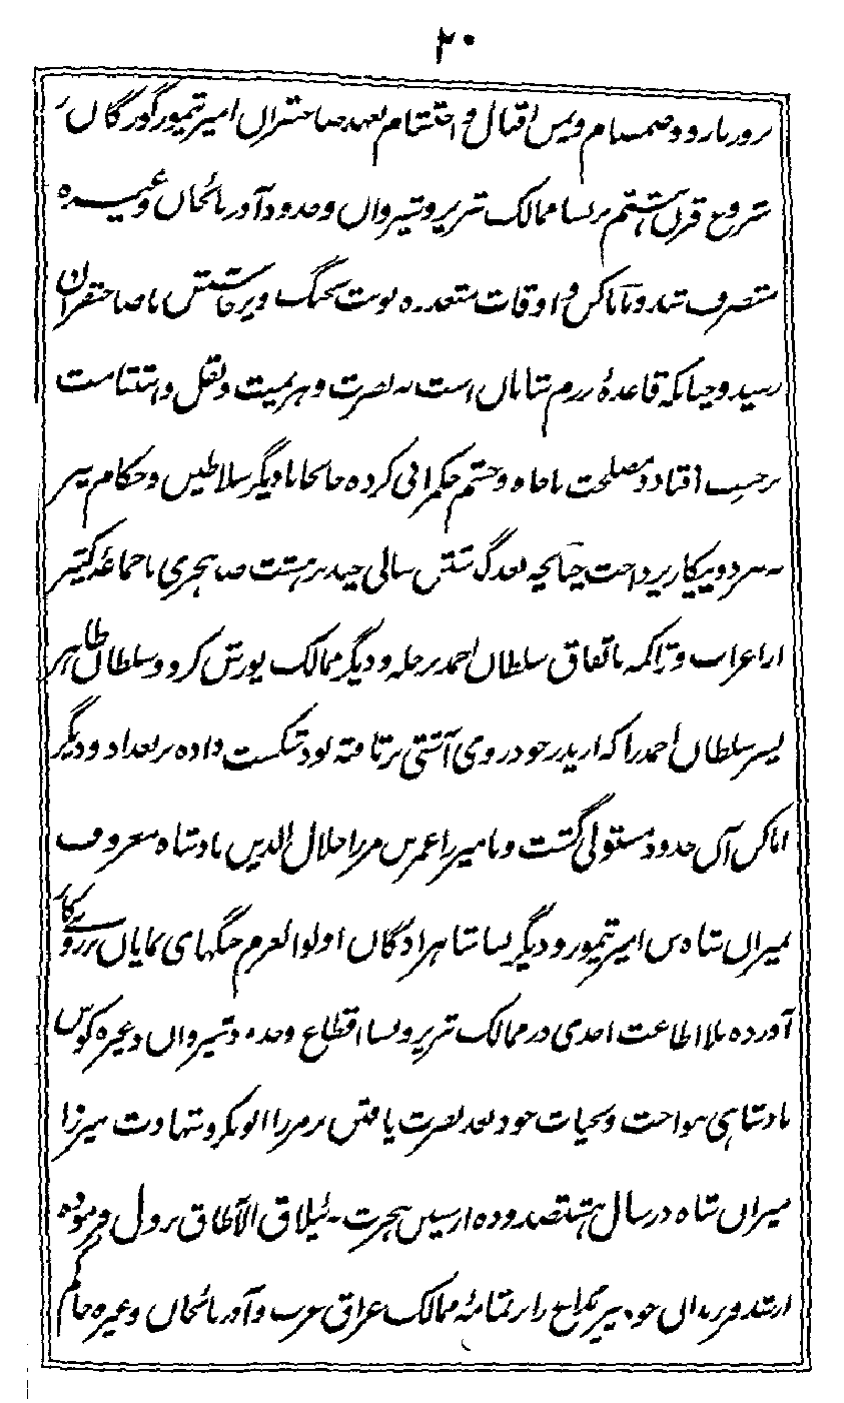 ۲۰
بزور بازو و صمصام و یمن اقبال و احتشام بعهد صاحبقران امیر تیمور گورگان
شروع قرن هشتم بر بسا ممالک تبریز و شیروان و حدود آذربائجان وغیره
متصرف شد و تا اماکن و اوقات متعدده نوبت بجنگ و پرخاش با صاحبقران
رسید و چنانکه قاعدهٔ رزم شاهان است به نصرت و هزیمت و نقل و
بر حسب افتاد و مصلحت با جاه و حشم حکمرانی کرده جابجا با دیگر سلاطین و حکام نیز
به نبرد و پیکار پرداخت چنانچه بعد گذشتن سالی چند بر هشت صد هجری با جماعهٔ کثیر
از اعراب و تراکمه باتفاق سلطان احمد بر حله و دیگر ممالک یورش کرد و سلطان طاهر
پسر سلطان احمد را که از پدر خود روی آشتی برتافته بود شکست داده بر بغداد و دیگر
اماکن آن حدود مستولی گشت و با میرزا عمر بن میرزا جلال الدین بادشاه معروف
میران شاه بن امیر تیمور و دیگر بسا شاهزادگان اولوالعزم جنگهای نمایان بر روی کار
آورده بلا اطاعت احدی در ممالک تبریز و بسا اقطاع وحدود شیروان وغیره کوس
بادشاهی نواخت و بحیات خود بعد نصرت یافتن بر میرزا ابوبکر و شهادت میرزا
میران شاه در سال هشتصد و ده از سنین هجرت به ئیلاق الاطاق نزول فرموده
ارشد فرزندان خود پیر بداغ را بر تمامهٔ ممالک عراق عرب و آذربائجان وغیره حاکم